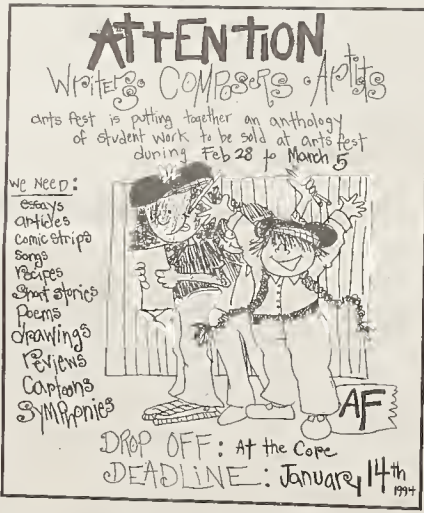 ATTENTION
Writers Composers Artists
arts fest is putting together an anthology
of student work to be sold at arts fest
during Feb 28 to March 5
We NeeD:
essays
articles
comic strips
songs
recipes
Short stories
Poems
drawings
reviews
Cartoons
SYMPhonies
AF
DROP OFF: At the Cope
DEADLINE: January 14th
1994